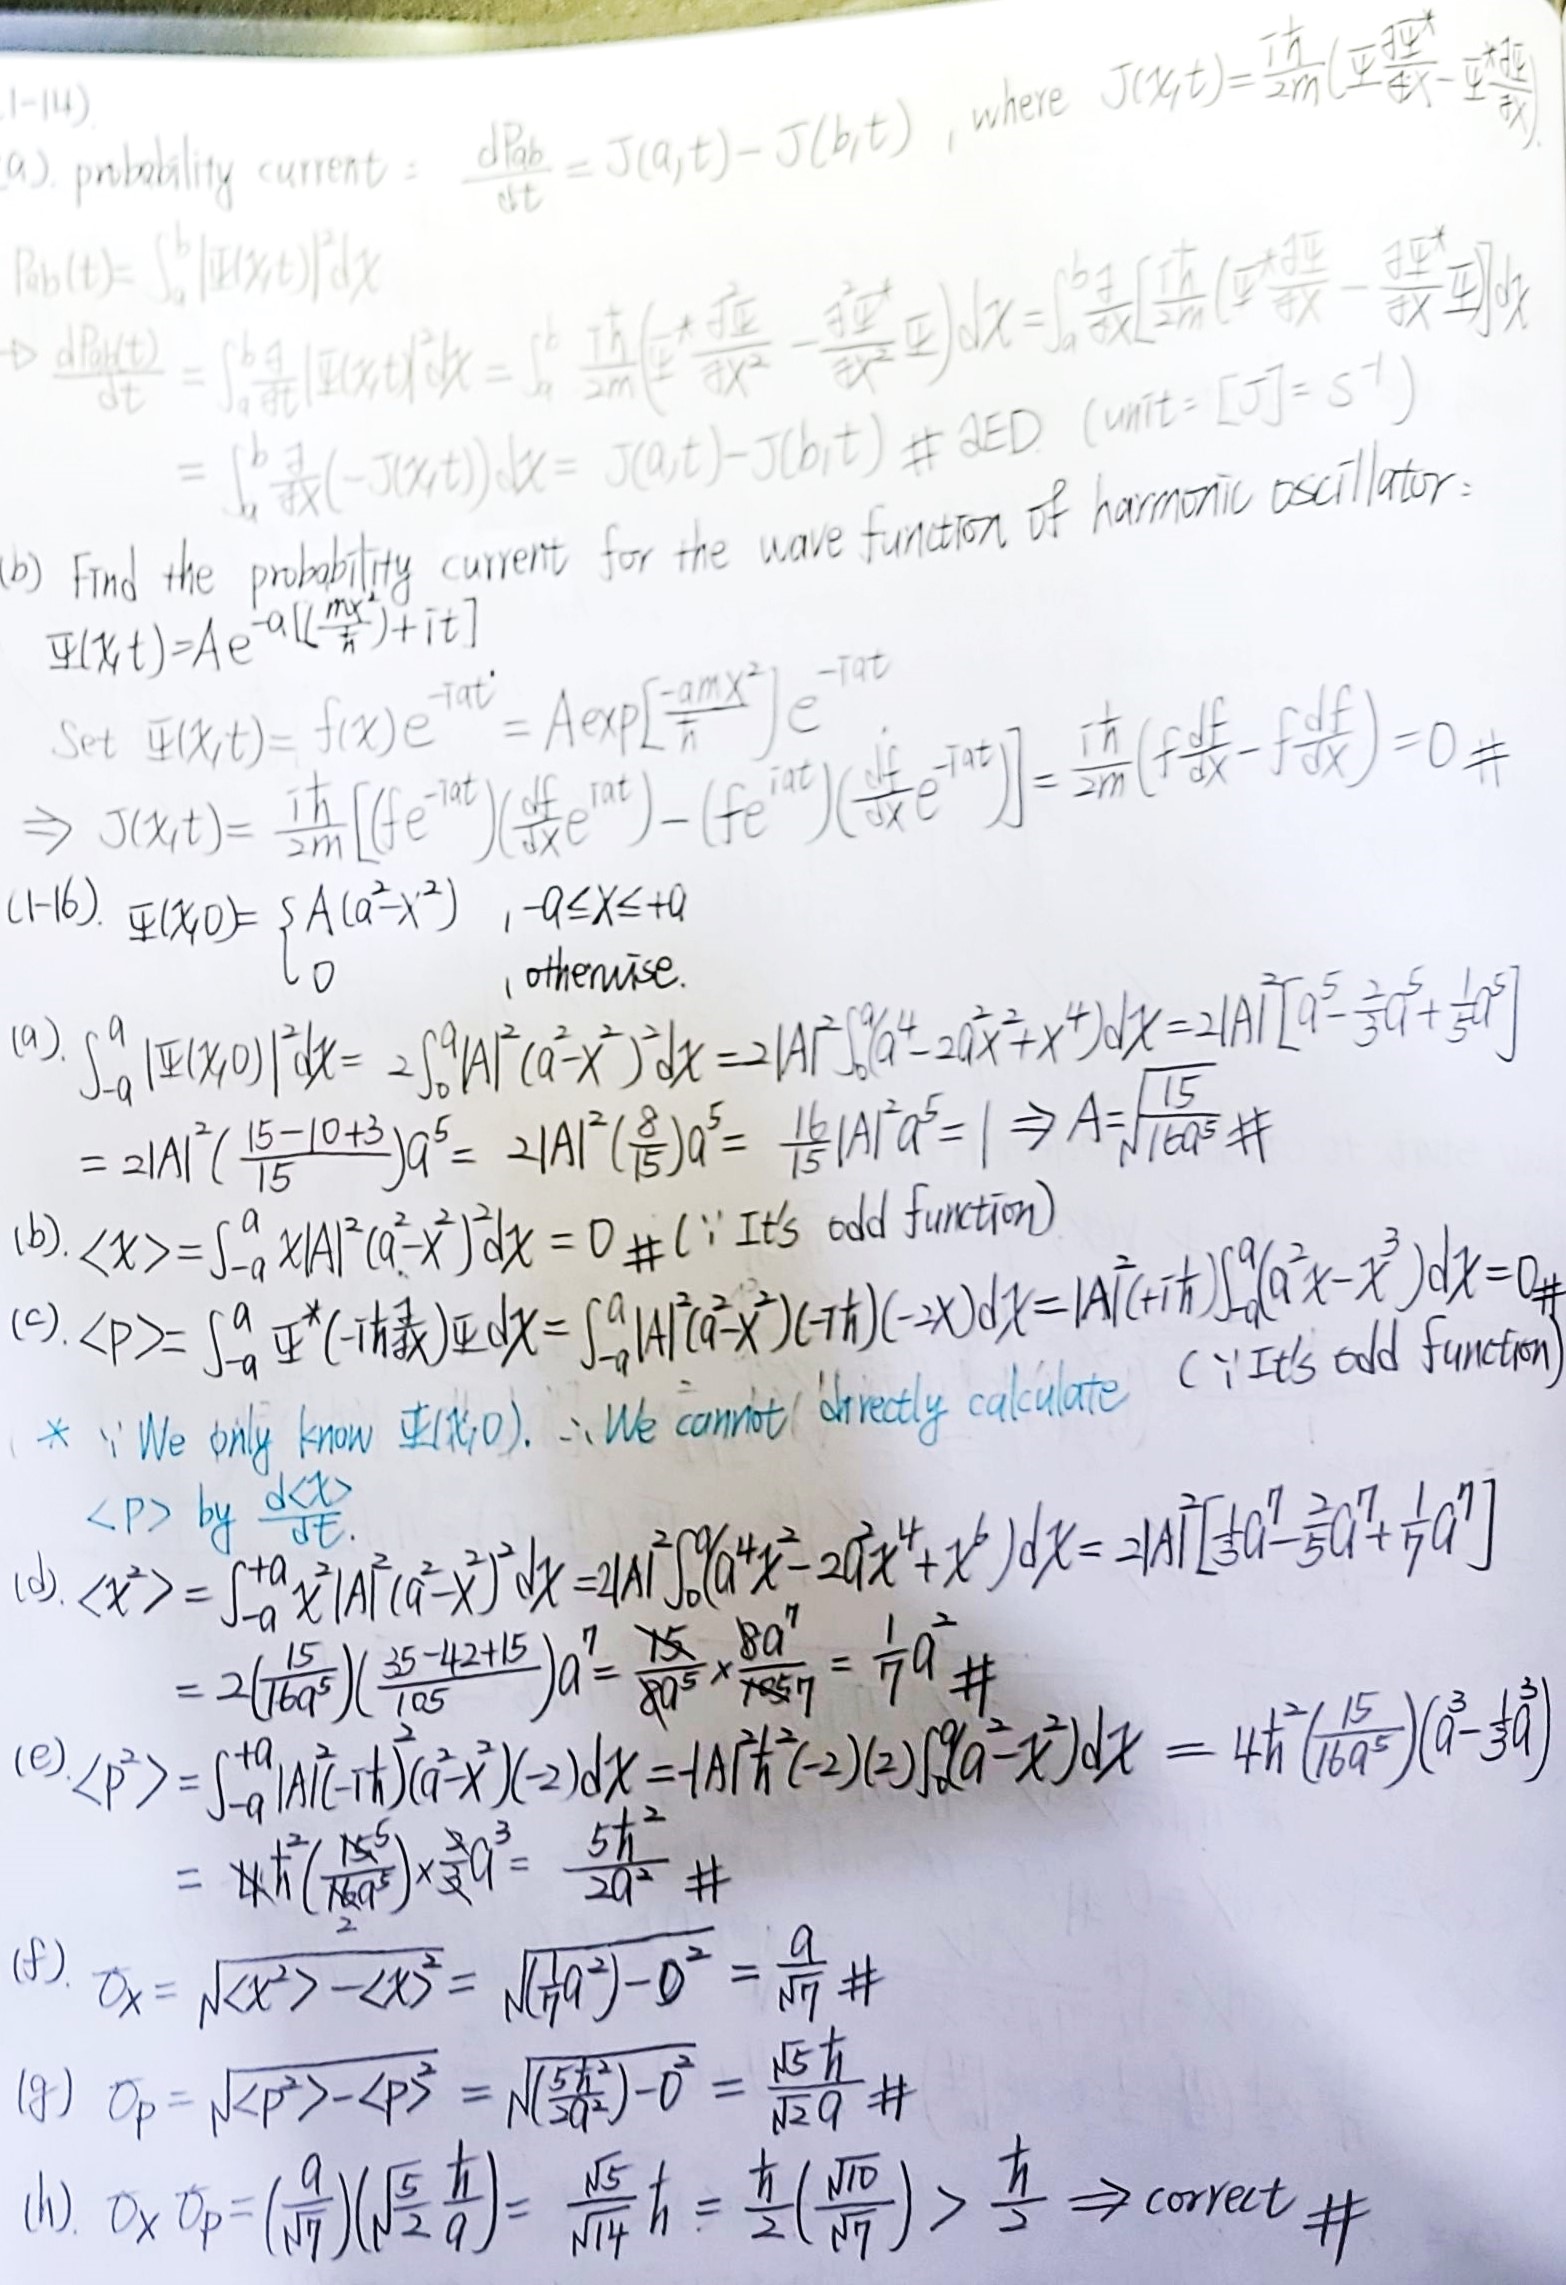 (1-14).
(a). probability current : dPab/dt = J(a,t) - J(b,t) , where J(x,t) = iħ/2m (Ψ ∂Ψ*/∂x - Ψ* ∂Ψ/∂x).
Pab(t) = ∫_a^b |Ψ(x,t)|² dx
→ dPab(t)/dt = ∫_a^b ∂/∂t |Ψ(x,t)|² dx = ∫_a^b iħ/2m (Ψ* ∂²Ψ/∂x² - ∂²Ψ*/∂x² Ψ) dx = ∫_a^b ∂/∂x [iħ/2m (Ψ* ∂Ψ/∂x - ∂Ψ*/∂x Ψ)] dx
= ∫_a^b ∂/∂x (-J(x,t)) dx = J(a,t) - J(b,t) # QED. (unit = [J] = s⁻¹)
(b) Find the probability current for the wave function of harmonic oscillator :
Ψ(x,t) = A e^{-a[(mx²/ħ) + it]}
Set Ψ(x,t) = f(x) e^{-iat} = A exp[-amx²/ħ] e^{-iat}
⇒ J(x,t) = iħ/2m [(f e^{-iat})(df/dx e^{iat}) - (f e^{iat})(df/dx e^{-iat})] = iħ/2m (f df/dx - f df/dx) = 0 #
(1-16). Ψ(x,0) = { A(a²-x²) , -a ≤ x ≤ +a
0 , otherwise.
(a). ∫_{-a}^a |Ψ(x,0)|² dx = 2∫_0^a |A|² (a²-x²)² dx = 2|A|² ∫_0^a (a⁴ - 2a²x² + x⁴) dx = 2|A|² [a⁵ - 2/3 a⁵ + 1/5 a⁵]
= 2|A|² ((15-10+3)/15) a⁵ = 2|A|² (8/15) a⁵ = 16/15 |A|² a⁵ = 1 ⇒ A = √(15/16a⁵) #
(b). <x> = ∫_{-a}^a x|A|² (a²-x²)² dx = 0 # (∵ It's odd function)
(c). <p> = ∫_{-a}^a Ψ* (-iħ ∂/∂x) Ψ dx = ∫_{-a}^a |A|² (a²-x²)(-iħ)(-2x) dx = |A|² (+iħ) ∫_{-a}^a (a²x - x³) dx = 0 #
(∵ It's odd function)
* ∵ We only know Ψ(x,0). ∴ We cannot directly calculate
<p> by d<x>/dt.
(d). <x²> = ∫_{-a}^{+a} x² |A|² (a²-x²)² dx = 2|A|² ∫_0^a (a⁴x² - 2a²x⁴ + x⁶) dx = 2|A|² [1/3 a⁷ - 2/5 a⁷ + 1/7 a⁷]
= 2(15/16a⁵)((35-42+15)/105) a⁷ = 15/8a⁵ × 8a⁷/105 7 = 1/7 a² #
(e). <p²> = ∫_{-a}^{+a} |A|² (-iħ)² (a²-x²)(-2) dx = -|A|² ħ² (-2)(2) ∫_0^a (a²-x²) dx = 4ħ² (15/16a⁵)(a³ - 1/3 a³)
= 4ħ² (15 5/16a⁵ 2) × 2/3 a³ = 5ħ²/2a² #
(f). σx = √(<x²> - <x>²) = √((1/7 a²) - 0²) = a/√7 #
(g) σp = √(<p²> - <p>²) = √((5ħ²/2a²) - 0²) = √5 ħ/√2 a #
(h). σx σp = (a/√7)(√(5/2) ħ/a) = √5/√14 ħ = ħ/2 (√10/√7) > ħ/2 ⇒ correct #